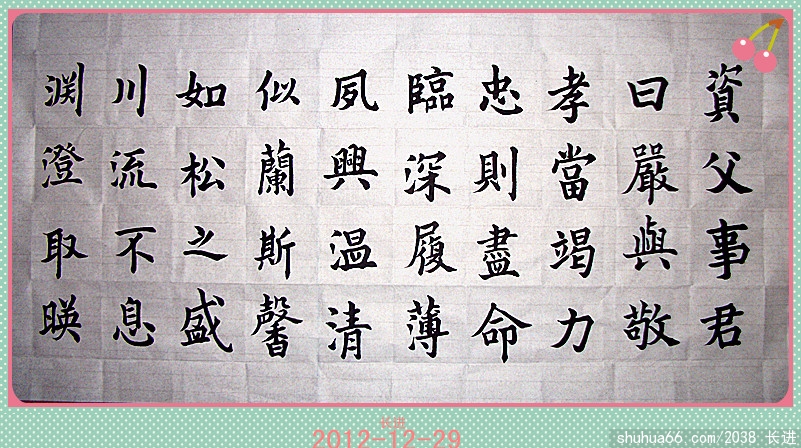 資父事君
曰嚴與敬
孝當竭力
忠則盡命
臨深履薄
夙興温清
似蘭斯馨
如松之盛
川流不息
渕澄取暎
长进
2012-12-29
shuhua66.com/2038 长进